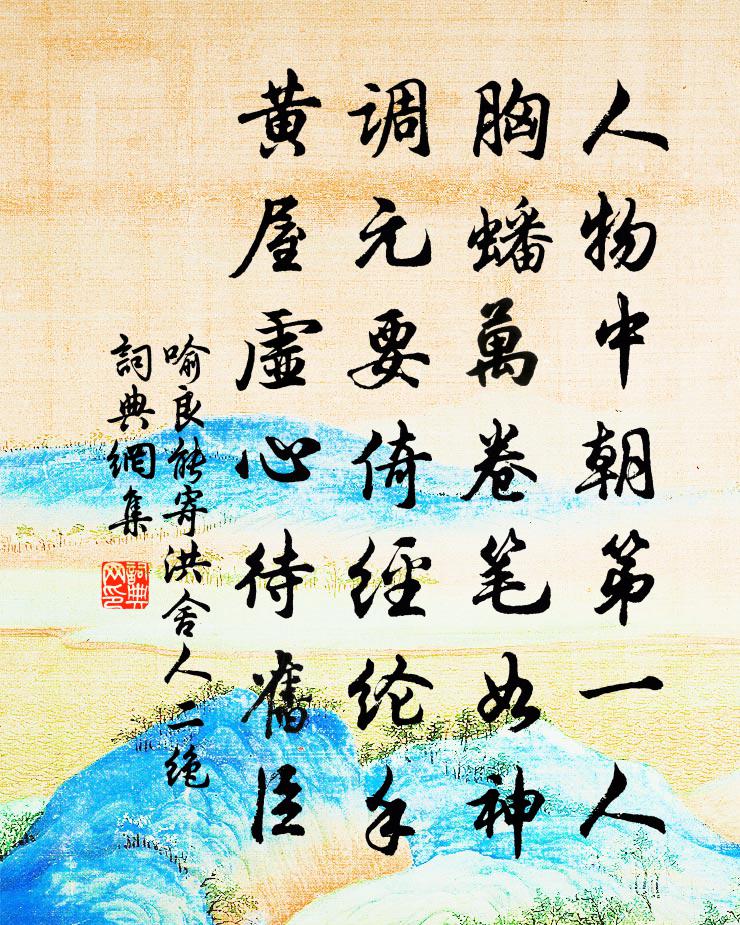 人物中朝第一人
胸蟠萬卷笔如神
调元要倚經纶手
黄屋虛心待舊臣
喻良能寄洪舍人二绝
詞典網集
詞典网印